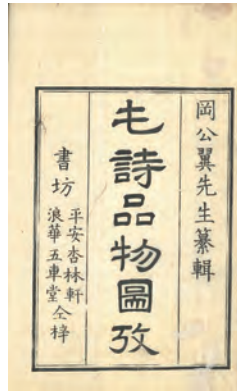 岡公翼先生纂輯
毛詩品物圖攷
書坊
平安杏林軒
浪華五車堂仝梓